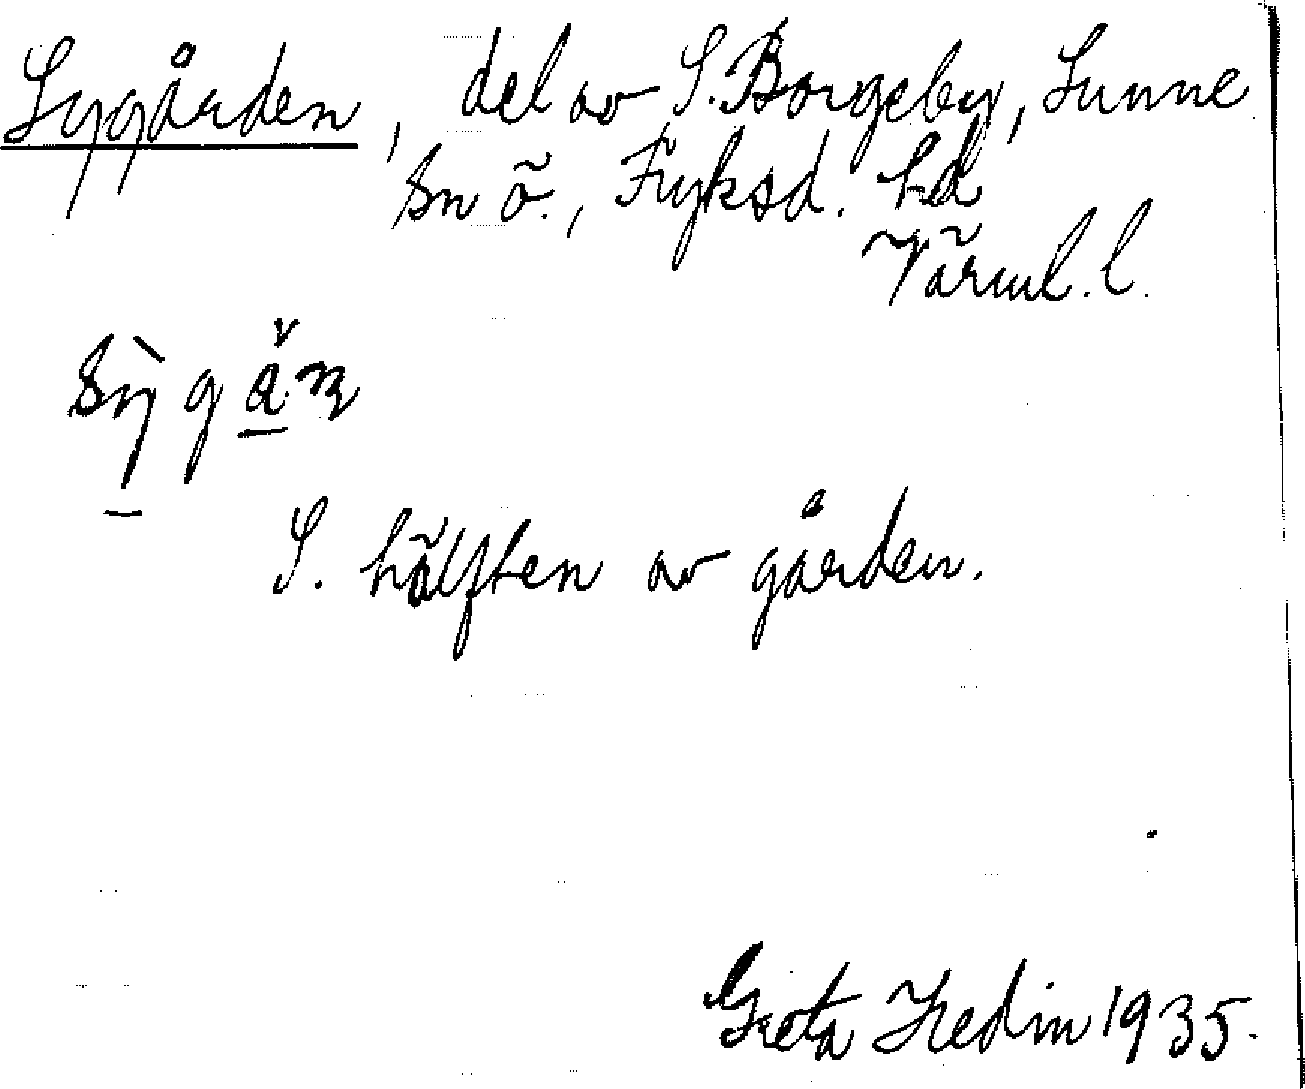 Sygården, del av S. Borgeby, Sunne
sn ö., Fryksd. hd
Värml. l.
S. hälften av gården.
Greta Hedin 1935.